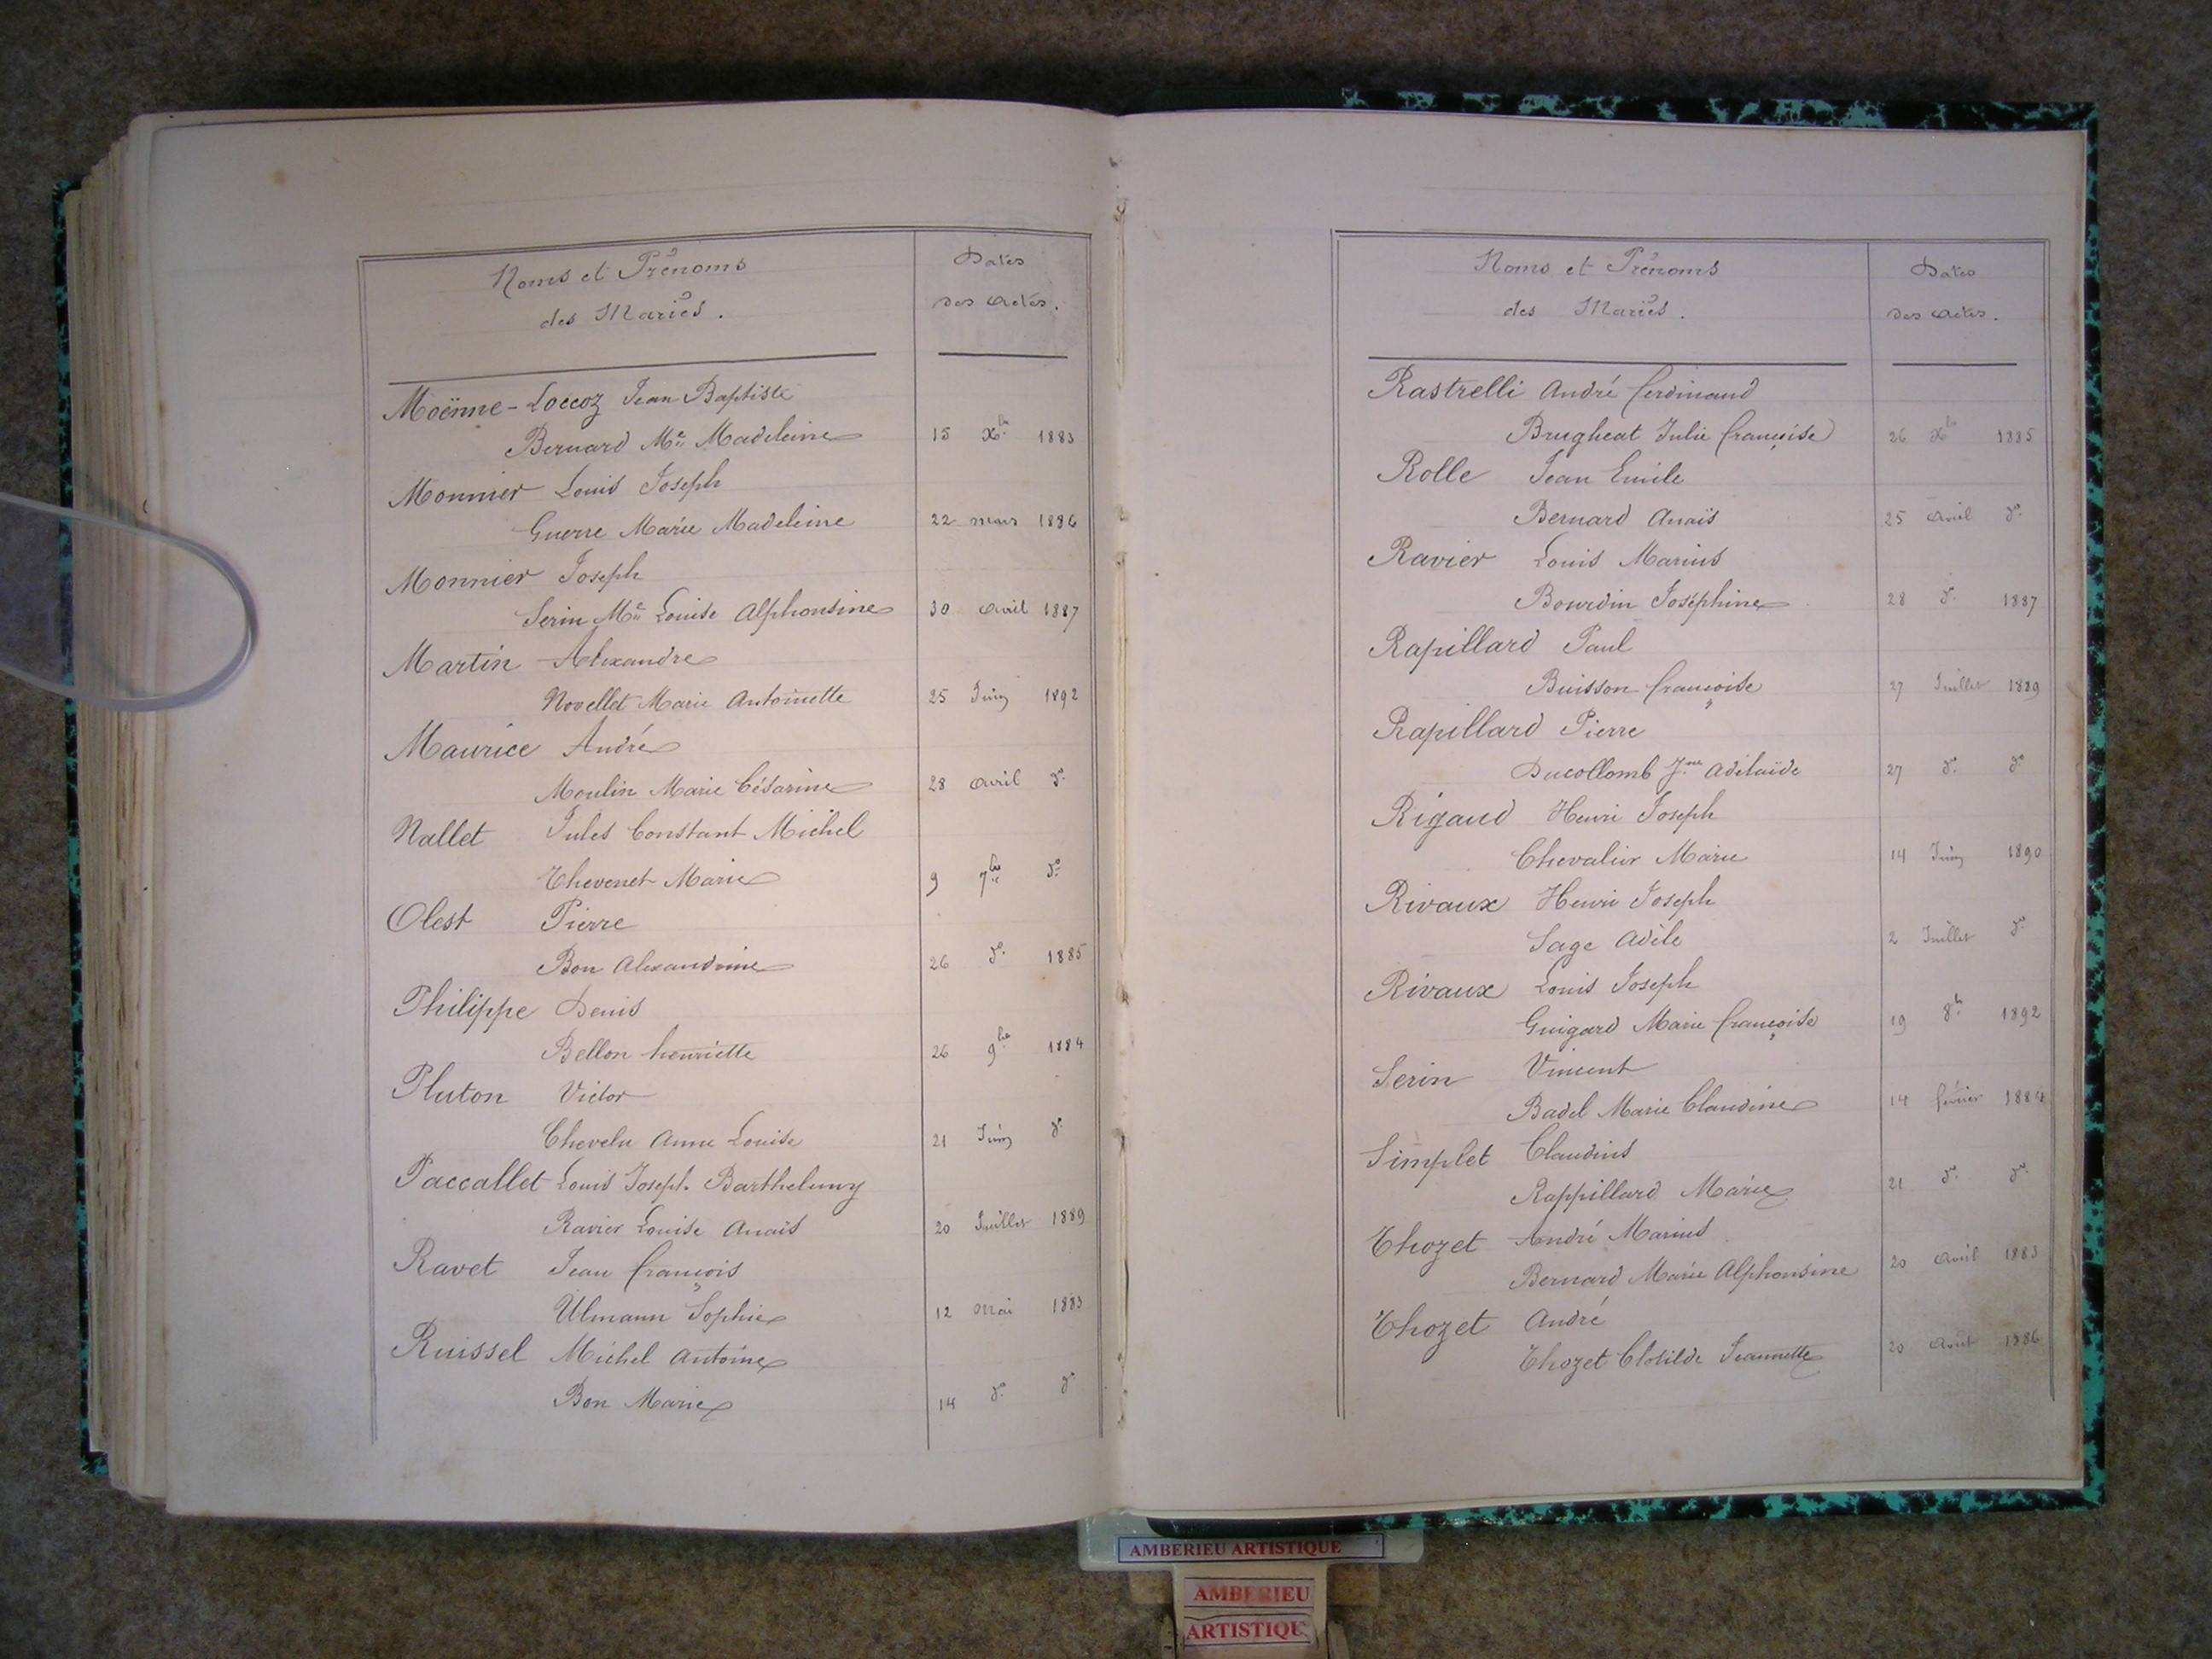 Noms et Prénoms
des Mariés.
Dates
des actes.
Moënne-Loccoz Jean Baptiste
Bernard Mie Madeleine 15 Xbre 1883
Monnier Louis Joseph
Guerre Marie Madeleine 22 mars 1886
Monnier Joseph
Serin Mie Louise Alphonsine 30 avril 1887
Martin Alexandre
Novellet Marie Antoinette 25 Juin 1892
Maurice André
Moulin Marie Césarine 28 avril do
Nallet Jules Constant Michel
Thevenet Marie 9 7bre do
Olest Pierre
Bon Alexandrine 26 do 1885
Philippe Denis
Bellon henriette 26 9bre 1884
Pluton Victor
Chevelu Anne Louise 21 Juin do
Paccallet Louis Joseph Barthelemy
Ravier Louise Anaïs 20 Juillet 1889
Ravet Jean françois
Ulmann Sophie 12 mai 1883
Ruissel Michel Antoine
Bon Marie 14 do do
Noms et Prénoms
des Mariés.
Dates
des actes.
Rastrelli André ferdinand
Brugheat Julie françoise 26 Xbre 1885
Rolle Jean Emile
Bernard Anaïs 25 avril do
Ravier Louis Marius
Bourdin Joséphine 28 do 1887
Rapillard Paul
Buisson françoise 27 Juillet 1889
Rapillard Pierre
Ducollomb Jne Adélaïde 27 do do
Rigaud Henri Joseph
Chevalier Marie 14 Juin 1890
Rivaux Henri Joseph
Sage Adèle 2 Juillet do
Rivaux Louis Joseph
Guigard Marie françoise 19 8bre 1892
Serin Vincent
Badel Marie Claudine 14 février 1884
Simplet Claudius
Rappillard Marie 21 do do
Thozet André Marius
Bernard Marie Alphonsine 20 avril 1883
Thozet André
Thozet Clotilde Jeannette 20 Août 1886
AMBERIEU ARTISTIQUE
AMBERIEU
ARTISTIQUE